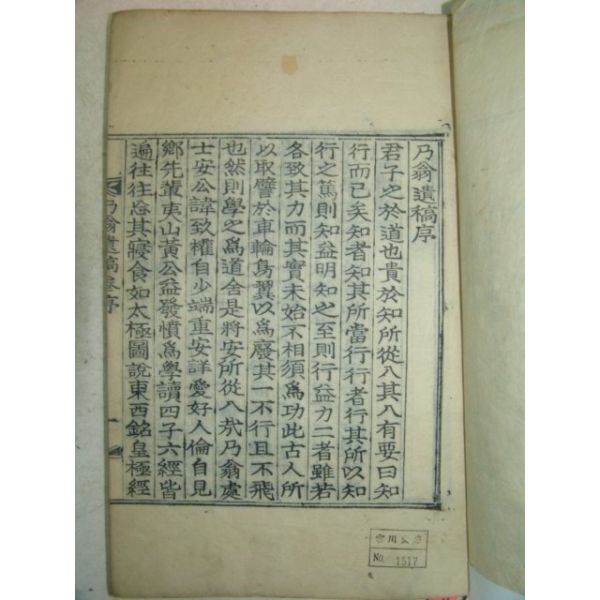 乃翁遺稿序
君子之於道也貴於知所從入其入有要曰知
行而已矣知者知其所當行行者行其所以知
行之篤則知益明知之至則行益力二者雖若
各致其力而其實未始不相須爲功此古人所
以取譬於車輪鳥翼以爲廢其一不行且不飛
也然則學之爲道舍是將安所從入哉乃翁處
士安公諱致權自少端重安詳愛好人倫自見
鄉先輩夷山黃公益發憤爲學讀四子六經皆
遍往往忘其寢食如太極圖說東西銘皇極經
乃翁遺稿 序
一
No. 1517